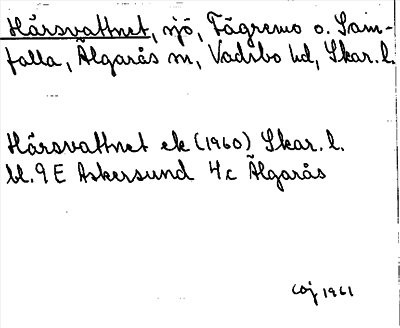 Hårsvattnet, sjö, Fägremo o. Sam-
falla, Älgarås sn, Vadsbo hd, Skar. l.
Hårsvattnet ek (1960) Skar. l.
bl. 9 E Askersund 4c Älgarås
1961